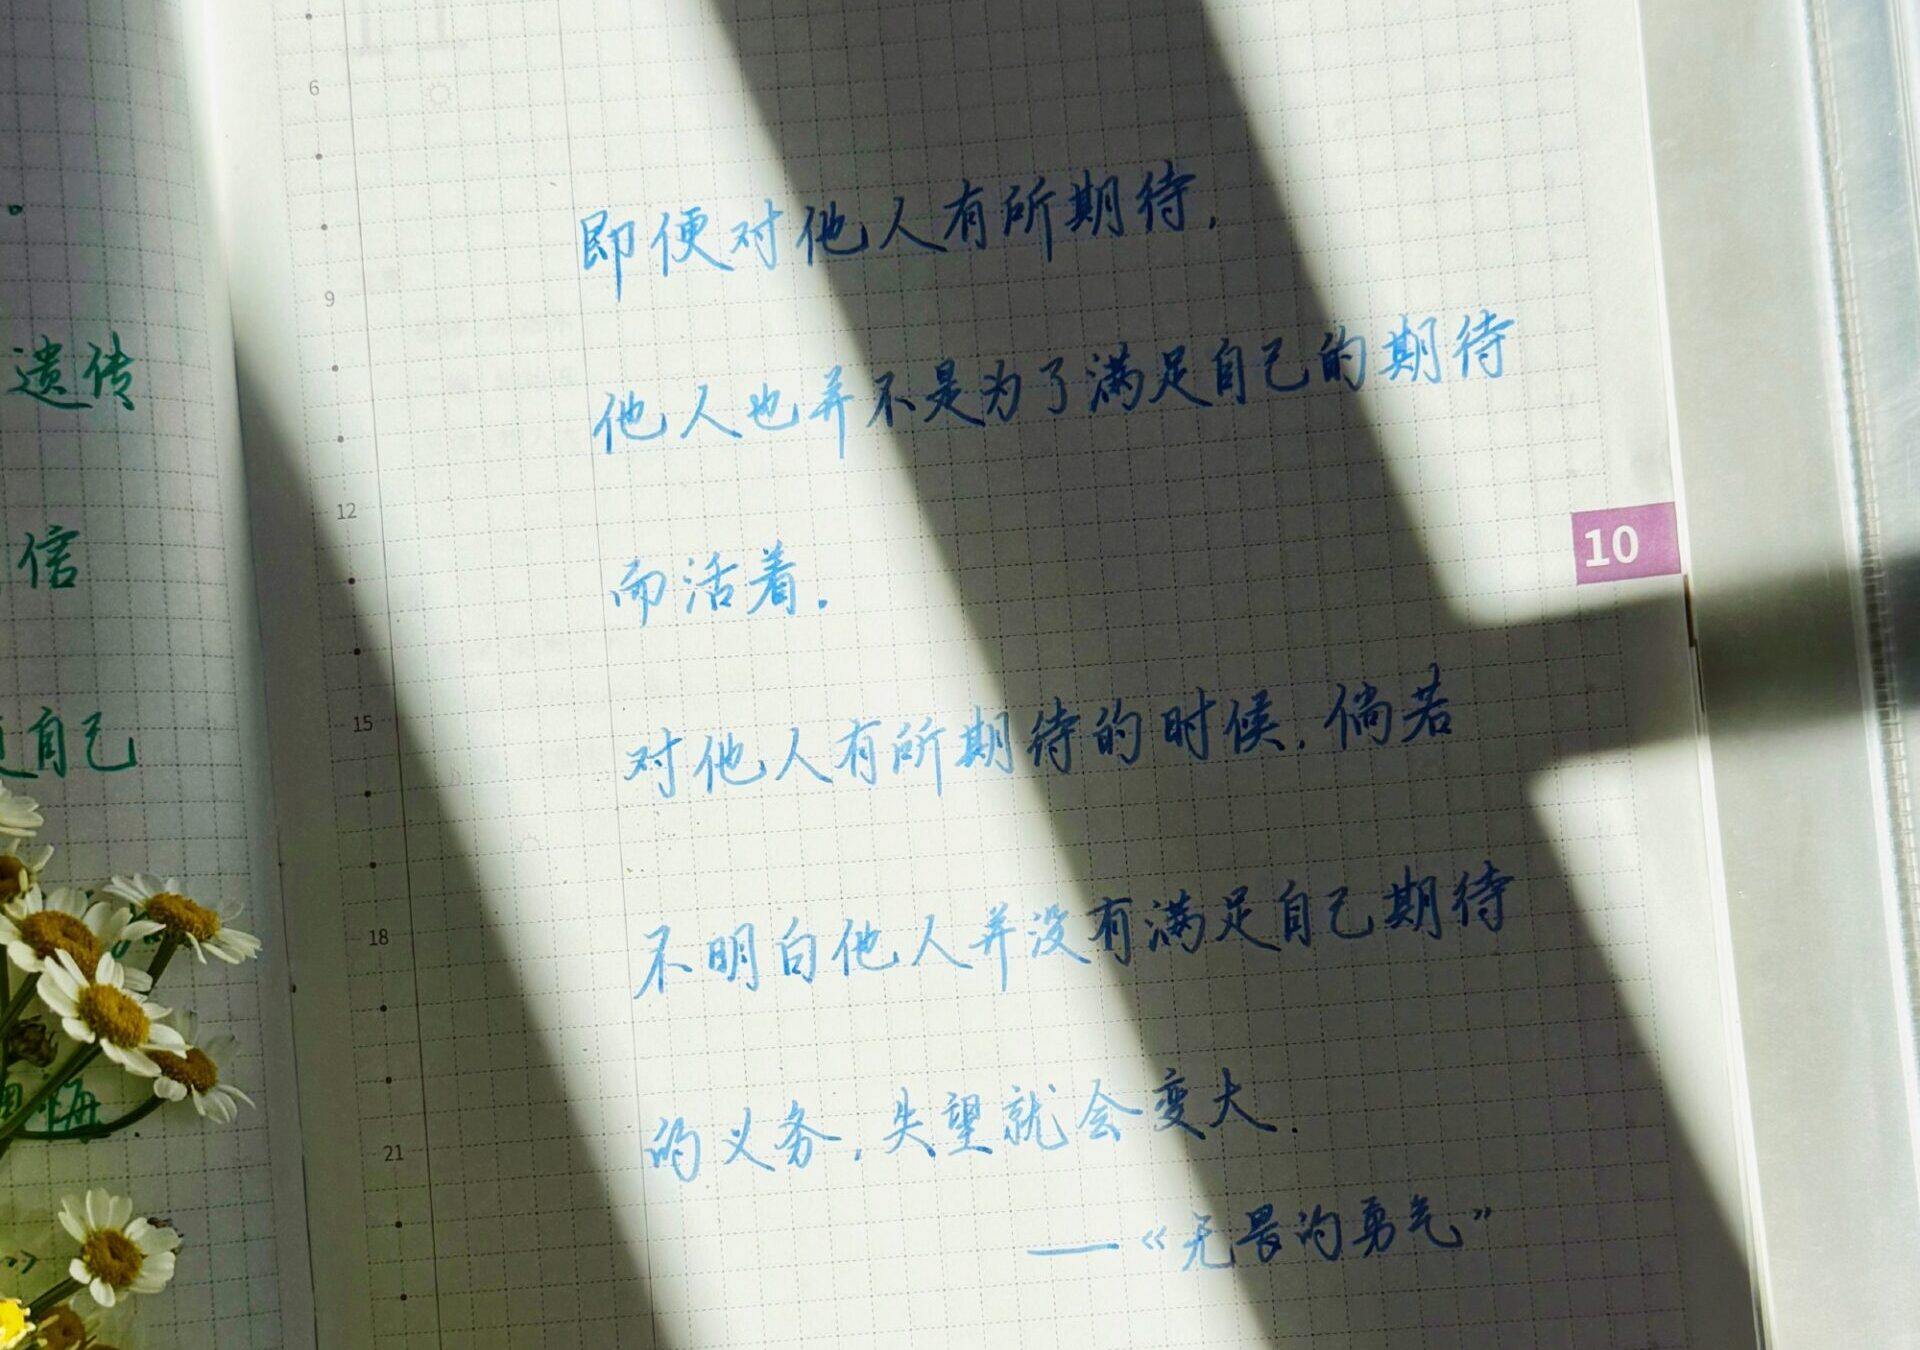 遗传
信
自己
悔
》
6
9
12
15
18
21
即便对他人有所期待,
他人也并不是为了满足自己的期待
而活着.
对他人有所期待的时候,倘若
不明白他人并没有满足自己期待
的义务,失望就会变大.
——《无畏的勇气》
10